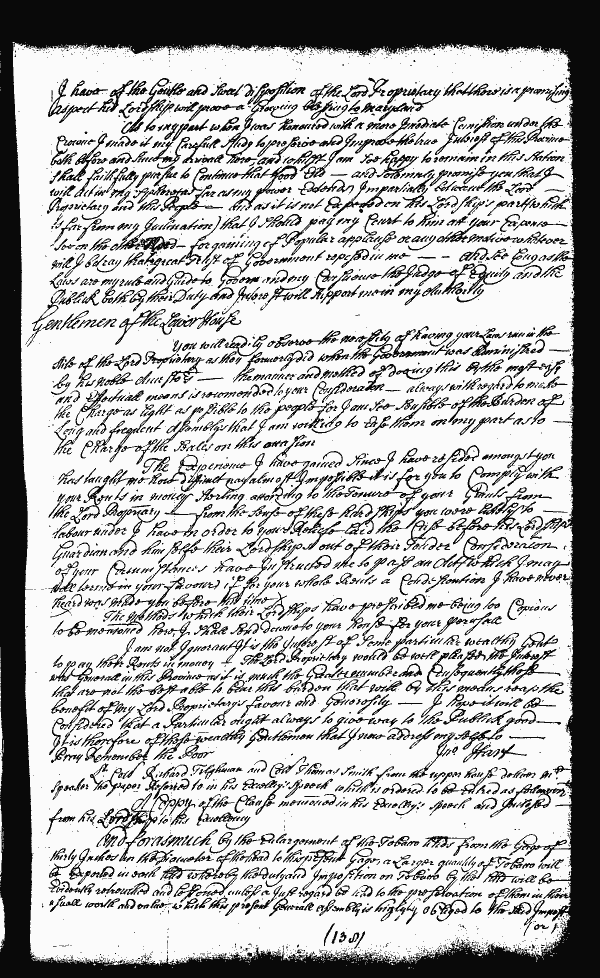 I have of the Gentle and Sweet disposition of the Lord Proprietary that there is a promising
aspect his Lordship will prove a Growing blessing to Maryland
As to my part when I was Honoured with a more Imediate Comission under the
Crowne I made it my Carefull Study to preserve and Improve the true Interest of the Province
both before and since my arrivall here and whilst I am soe happy to remain in this Station
shall faithfully pursue to Continue that Good End — and solemnly promise you that I
will act in my Ministeriall so far as my power Extends Impartially between the Lord
Proprietary and the People — and as it is not Expected on his Lordships part (which
is far from my Inclination) that I should pay my Court to him at your Expence
soe on the other Hand — for gaining of Popular applause or any other motive whatever
will I betray that great Trust of Government reposed in me — and soe Long as the
Laws are my rule and Guide to Govern and my Conscience the Judge of Equity and the
Publick both by their Duty and Interest will support me in my Authority
Gentlemen of the Lower House
You will readily observe the necessity of having your Laws run in the
stile of the Lord Proprietary as they formerly did when the Government was Administred
by his noble Ancestors — the manner and method of doeing this by the most easy
and Effectuall means is recomended to your Consideration — always with regard to make
the Charge as light as possible to the people for I am soe sensible of the Burden of
Long and frequent Assemblys that I am willing to ease them on my part as to
the Charge of the Seales on this occasion
The Experience I have gained since I have resided amongst you
has taught me how difficult nay almost Impossible it is for you to Comply with
your Rents in money Sterling according to the Tenure of your Grants from
the Lord Proprietary — from the sense of these Hardships you were
labour under I have in order to your Reliefe laid the Case before his Lordships
Guardian and himselfe their Lordships out of their Tender Consideration
of your Circumstances have Instructed me to pass an Act which I may
well terme in your favour if for your whole Rents a Condescention I have never
heard was made you before this time
The methods which their Lordships have prescribed me being too Copious
to be mentioned here I shall send downe to your house for your perusall
I am not Ignorant it is the Interest of Some particular wealthy Gentn
to pay their Rents in money — The Lord Proprietary would be well pleased the Interest
was Generall in this Province as it is much the Greater number and Consequently those
that are not the best able to bear this burden that will by this means reap the
benefit of my Lord Proprietarys favour and Generosity — I hope it will be
Considered that a Particular ought always to give way to the Publick good
It is therefore of those wealthy Gentlemen that I now address my selfe to —
Pray Remember the Poor Jno Hart
Lt Coll Richard Tilghman and Coll Thomas Smith from the upper house deliver Mr
Speaker the paper Referred to in his Excellys Speech which is ordered to be Entred as followeth
A Coppy of the Clause mentioned in his Excellys Speech and Inclosed
from his Lordship to his Excellency
And forasmuch by the Enlargement of the Tobacco Hhds from the Gage of
thirty Inches in the Diameter of the head to this present Gage a Larger quantity of Tobacco will
be Exported in each Hhd whereby the duty and Imposition on Tobacco by the Hhd will be
Evidently retrenched and Lessened unless a Just regard be had to the preservation of them in their
usuall worth and value which this present Generall Assembly is highly obliged to the said Impost
or
(138)